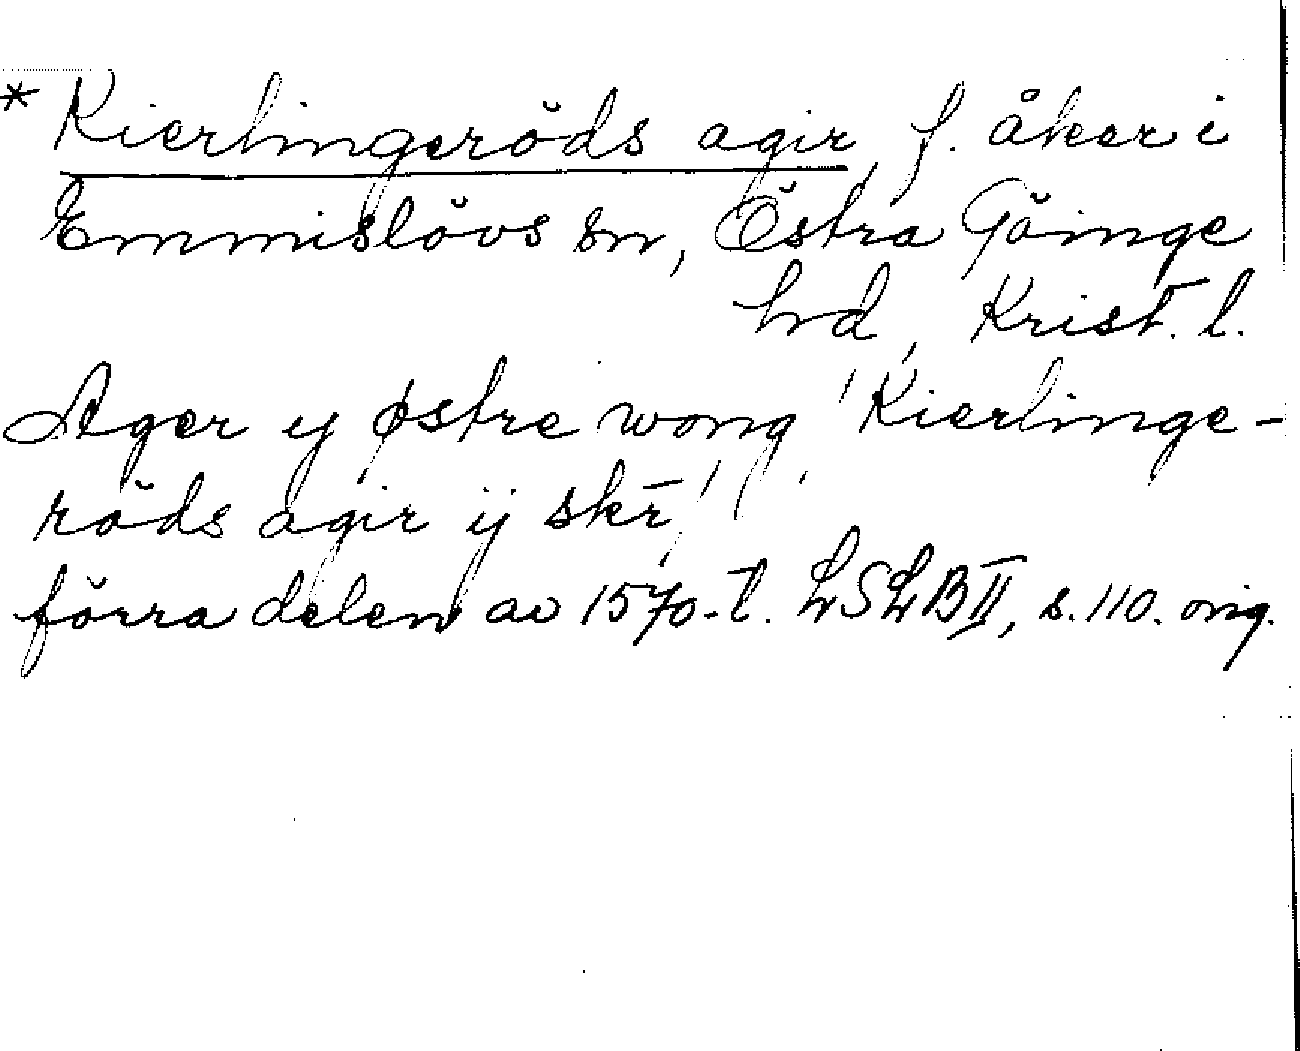 * Kierlingeröds agir, f. åker i
Emmislövs sn, Östra Göinge
hd, Krist. l.
Ager y østre wong, 'Kierlinge-
röds agir ij skr̄,'
förra delen av 1570-t. LSLB II, s. 110. orig.